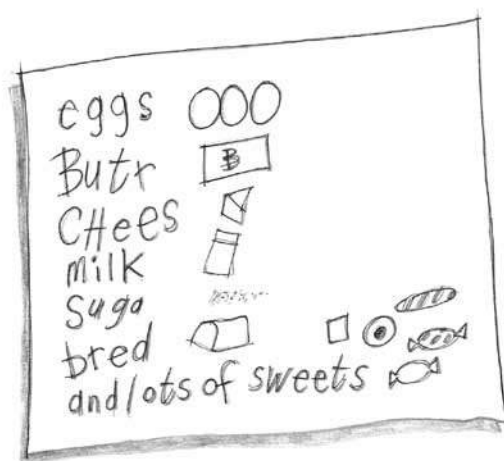 eggs
Butr B
CHees
milk
Suga
bred
and lots of sweets